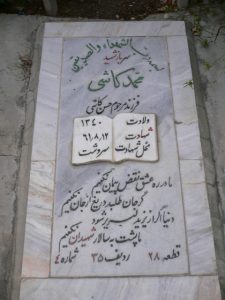 بسم رب الشهداء و الصدیقین
سرباز شهید
محمد کاشی
فرزند مرحوم حسن کاشی
ولادت
۱۳۴۰
شهادت
۶۱/۸/۱۲
محل شهادت
سردشت
ما در ره عشق نقض پیمان نکنیم
گر جان طلبد دریغ از جان نکنیم
دنیا اگر از یزید لبریز شود
ما پشت به سالار شهیدان نکنیم
قطعه ۲۸ ردیف ۳۵ شماره ۴